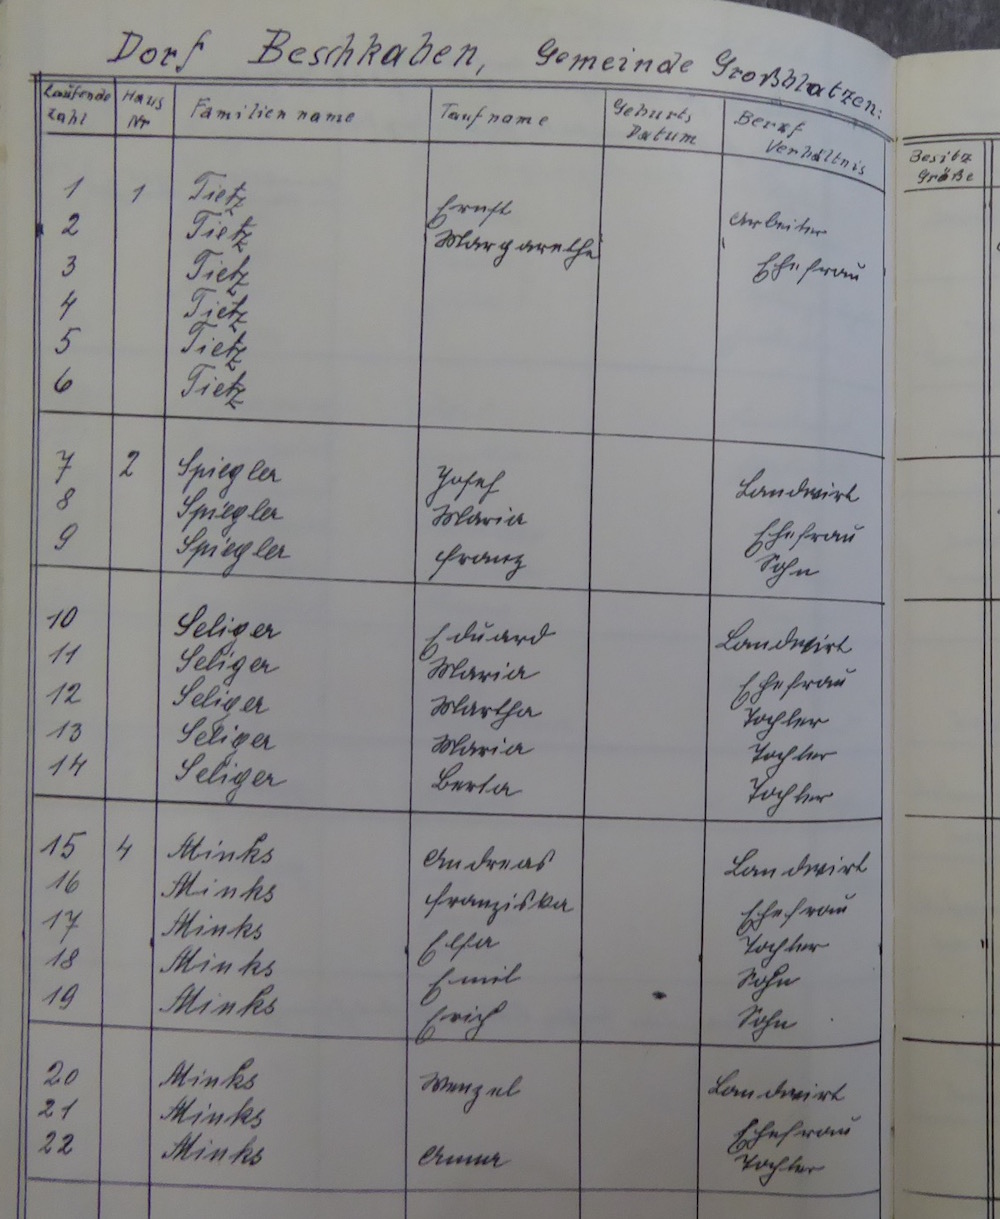 Dorf Beschkaben, Gemeinde Großhlatzen:
Laufende Zahl Haus Nr Familienname Taufname Geburts Datum Beruf Verhältnis Besitz Größe
1 1 Tietz Ernst Arbeiter
2 Tietz Margarethe Ehefrau
3 Tietz
4 Tietz
5 Tietz
6 Tietz
7 2 Spiegler Josef Landwirt
8 Spiegler Maria Ehefrau
9 Spiegler Franz Sohn
10 Seliger Eduard Landwirt
11 Seliger Maria Ehefrau
12 Seliger Martha Tochter
13 Seliger Maria Tochter
14 Seliger Berta Tochter
15 4 Minks Andreas Landwirt
16 Minks Franziska Ehefrau
17 Minks Elsa Tochter
18 Minks Emil Sohn
19 Minks Erich Sohn
20 Minks Wenzel Landwirt
21 Minks Ehefrau
22 Minks Anna Tochter